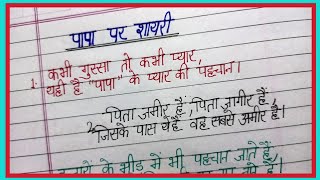 पापा पर शायरी
1. कभी गुस्सा तो कभी प्यार,
यही है "पापा" के प्यार की पहचान।
2. पिता अमीर हैं, पिता जागीर हैं,
जिसके पास ये हैं वह सबसे अमीर है।
के भीड़ में भी पहचान जाते हैं,